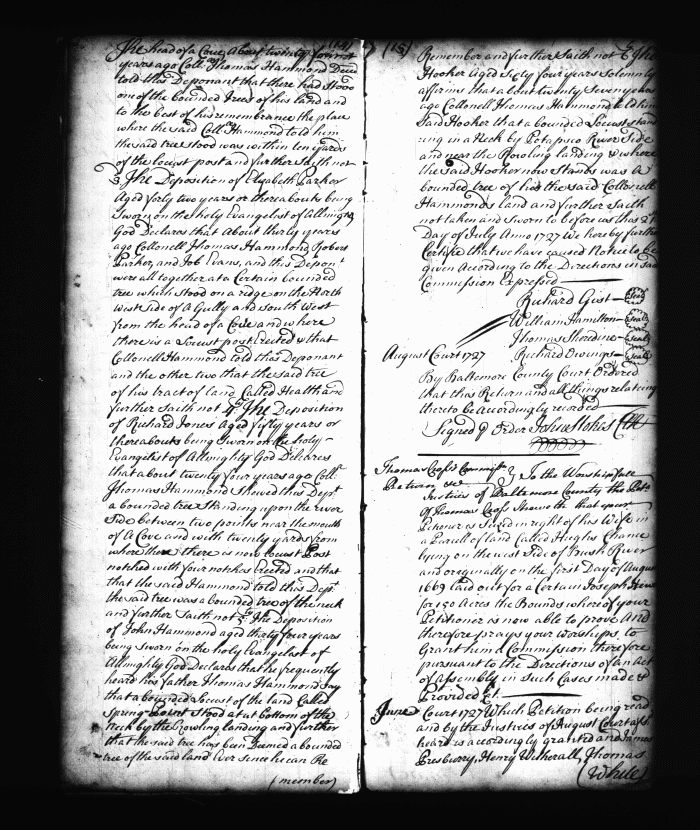 (14)
The head of a Cove About twenty four
years ago Coll. Thomas Hammond Decd
told this Deponant that there had Stood
one of the bounded Trees of his land and
to the best of his remembrance the place
where the said Coll. Hammond told him
the said tree stood was within ten yards
of the locust post and further Saith not
3 The Deposition of Elizabeth Parker
Aged forty two years or thereabouts being
Sworn on the holy Evangelist of Allmighty
God Declares that About thirty years
ago Collonell Thomas Hammond, Robert
Parker, and Job Evans, and this Depont
were all together at a Certain bounded
tree which stood on a ridge on the North
west Side of A Gully and South West
from the head of a Cove and where
there is a Locust post Erected & that
Collonell Hammond told this Deponant
and the other two that the said tree
of his tract of land Called Health and
further Saith not 4th The Deposition
of Richard Jones Aged fifty years or
thereabouts being Sworn on the holy
Evangelist of Allmighty God Declares
that about twenty four years ago Coll.
Thomas Hammond Shewed this Dept
a bounded tree Standing upon the river
Side between two points near the mouth
of A Cove and with twenty yards from
where there is now Locust Post
notched with four notches Erected and that
that the said Hammond told this Dept
the said tree was a bounded tree of the neck
and further Saith not 5th The Deposition
of John Hammond aged thirty four years
being Sworn on the holy Evangelist of
Allmighty God Declares that he frequently
heard his father Thomas Hammond Say
that a bounded Locust of the land Called
Spring Stood at at bottom of the
Neck by the Rowling landing and further
that the said tree has been Deemed a bounded
tree of the said land Ever since he can Re
(member)
(15)
Remember and further Saith not 6 The
Hooker Aged Sixty four years Solemnly
affirms that about twenty Seven years
ago Collonell Thomas Hammond told him
Said Hooker that a bounded Locust stand
ing in a Neck by Potapsco River Side
and near the Rowling landing & where
the said Hooker now Stands was A
bounded tree of his the said Collonell
Hammonds land and further Saith
not taken and Sworn before us this 2
Day of July Anno 1727 We hereby further
Certifie that we have caused Notice to be
given According to the Directions in said
Commission Expressed
Richard Gist (Seal)
William Hamilton (Seal)
Thomas Sheredine (Seal)
August Court 1727 Richard Owings (Seal)
By Baltemore County Court Ordered
that this Return and all things relateing
thereto be Accordingly recorded
Signed P Order John Stokes Clk
Thomas Cross's Commiss
Return &c To the Worshipfull
Justices of Baltemore County the Petn
Of Thomas Cross Sheweth that your
Petioner is Seized in right of his Wife in
a Parcell of land Called Hughs Chance
lying on the west Side of Bush River
and originally on the first Day of August
1669 laid out for a Certain Joseph
for 150 Acres the Bounds whereof your
Petitioner is now able to prove And
therefore prays your Worships to
Grant him a Commission therefore
pursuant to the Directions of an Act
of Assembly in Such Cases made &
Provided &c
June Court 1727 Which Petition being read
and by the Justices of August Court
heard is accordingly granted and James
Presburry, Henry Wetherall, Thomas
(White)